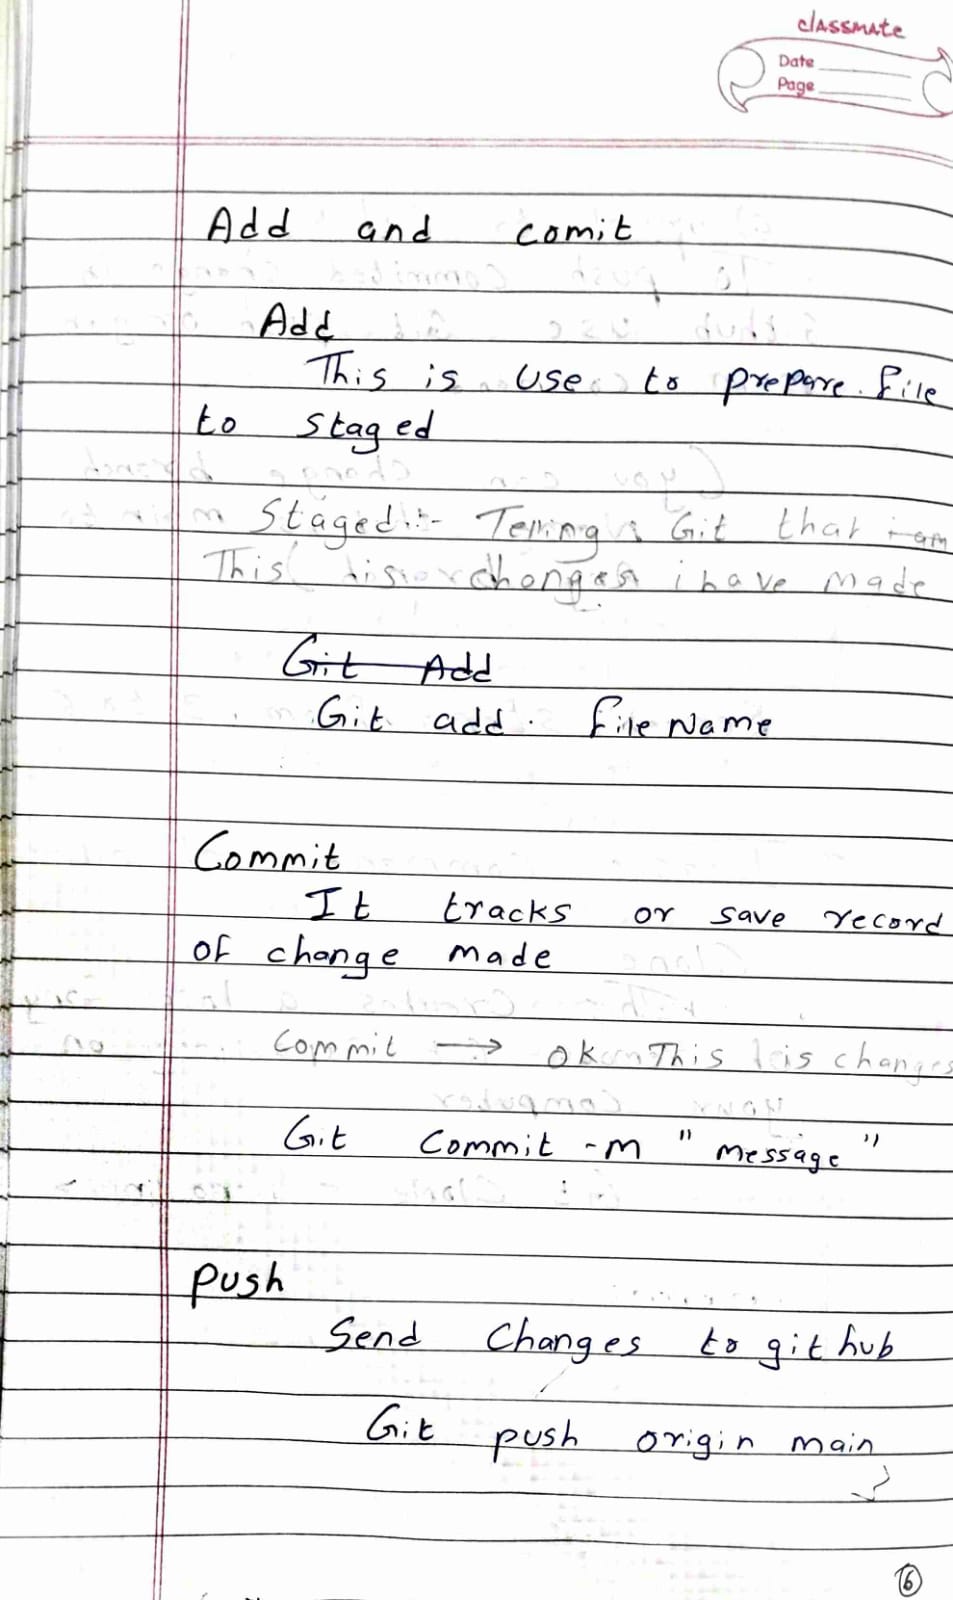 classmate
Date
Page
Add and comit
Add
This is use to prepare file
to staged
Staged :- Telling Git that i am
This changes i have made
Git Add
Git add . file Name
Commit
It tracks or save record
of change made
Commit → ok This is changes
Git Commit -m "message"
push
Send Changes to git hub
Git push origin main
6